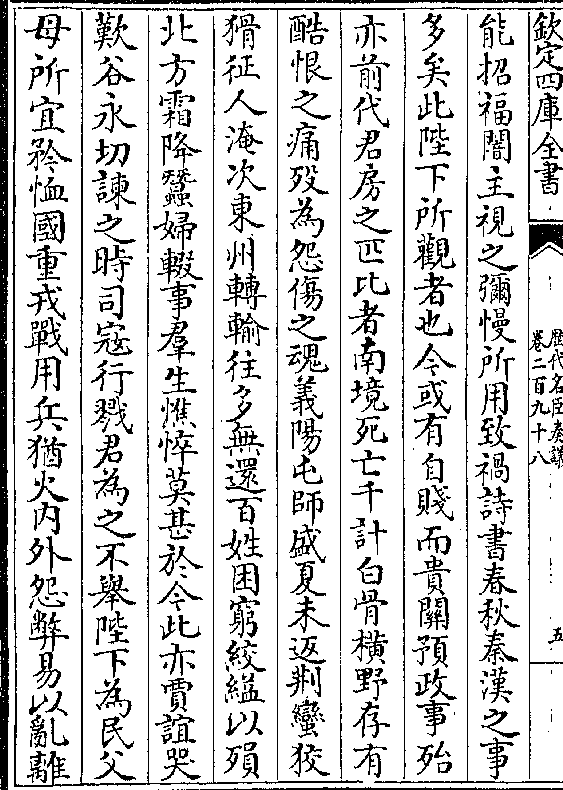 欽定四庫全書
歷代名臣奏議
卷二百九十八
五
能招福闇主視之彌慢所用致禍詩書春秋秦漢之事
多矣此陛下所觀者也今或有自賤而貴關預政事殆
亦前代君房之匹比者南境死亡千計白骨橫野存有
酷恨之痛歿為怨傷之魂義陽屯師盛夏未返荆蠻狡
猾征人淹次東州轉輸往多無還百姓困窮絞縊以殞
北方霜降蠶婦輟事羣生憔悴莫甚於今此亦賈誼哭
歎谷永切諫之時司寇行戮君為之不舉陛下為民父
母所宜矜恤國重戎戰用兵猶火内外怨弊易以亂離